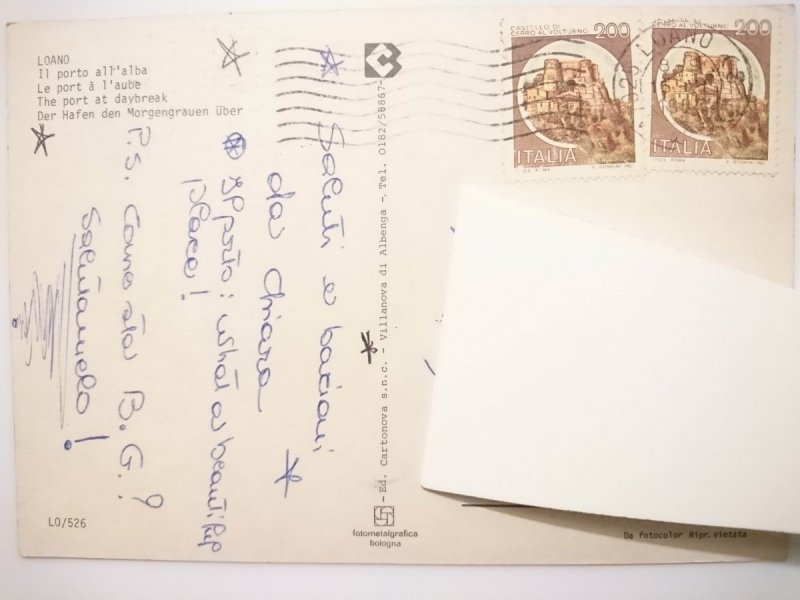 LOANO
Il porto all'alba
Le port à l'aube
The port at daybreak
Der Hafen den Morgengrauen über
Saluti e bacioni
da Chiara
Il porto: what a beautiful
place!
P.S. Come sta B.G.?
Salutamelo!
LO/526
Ed. Cartonova s.n.c. - Villanova di Albenga - Tel. 0182/58867-
fotometalgrafica
bologna
CASTELLO DI
CERRO AL VOLTURNO
200
ITALIA
CERRO AL VOLTURNO
200
ITALIA
LOANO
Da fotocolor Ripr. vietata